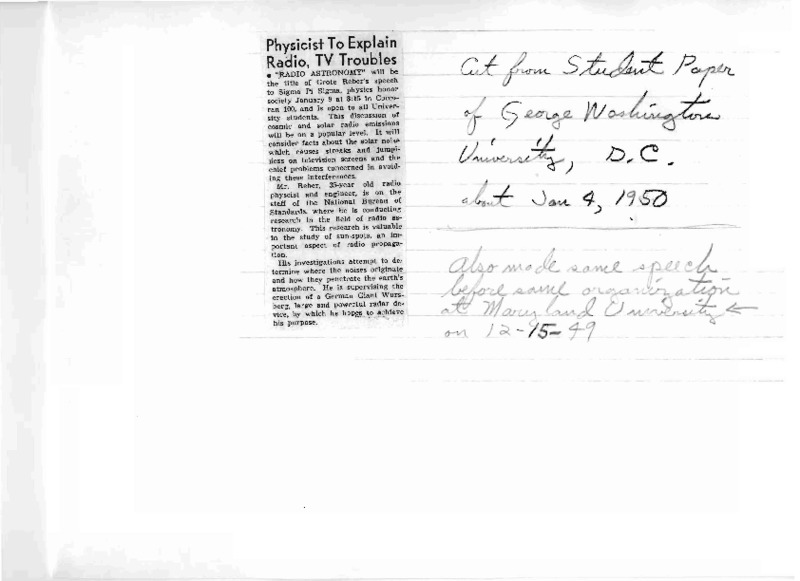 Physicist To Explain
Radio, TV Troubles
● "RADIO ASTRONOMY" will be
the title of Grote Reber's speech
to Sigma Pi Sigma, physics honor
society January 9 at 8:15 in Corco-
ran 100, and is open to all Univer-
sity students. This discussion of
cosmic and solar radio emissions
will be on a popular level. It will
consider facts about the solar noise
which causes streaks and jumpi-
ness on television screens and the
chief problems concerned in avoid-
ing these interferences.
Mr. Reber, 35-year old radio
physcist and engineer, is on the
staff of the National Bureau of
Standards, where he is conducting
research in the field of radio as-
tronomy. This research is valuable
to the study of sun-spots, an im-
portant aspect of radio propaga-
tion.
His investigations attempt to de-
termine where the noises originate
and how they penetrate the earth's
atmosphere. He is supervising the
erection of a German Giant Wurs-
berg, large and powerful radar de-
vice, by which he hopes to achieve
his purpose.
Cut from Student Paper
of George Washington
University, D.C.
about Jan 4, 1950
Also made same speech
before same organization
at Maryland University ←
on 12-15-49